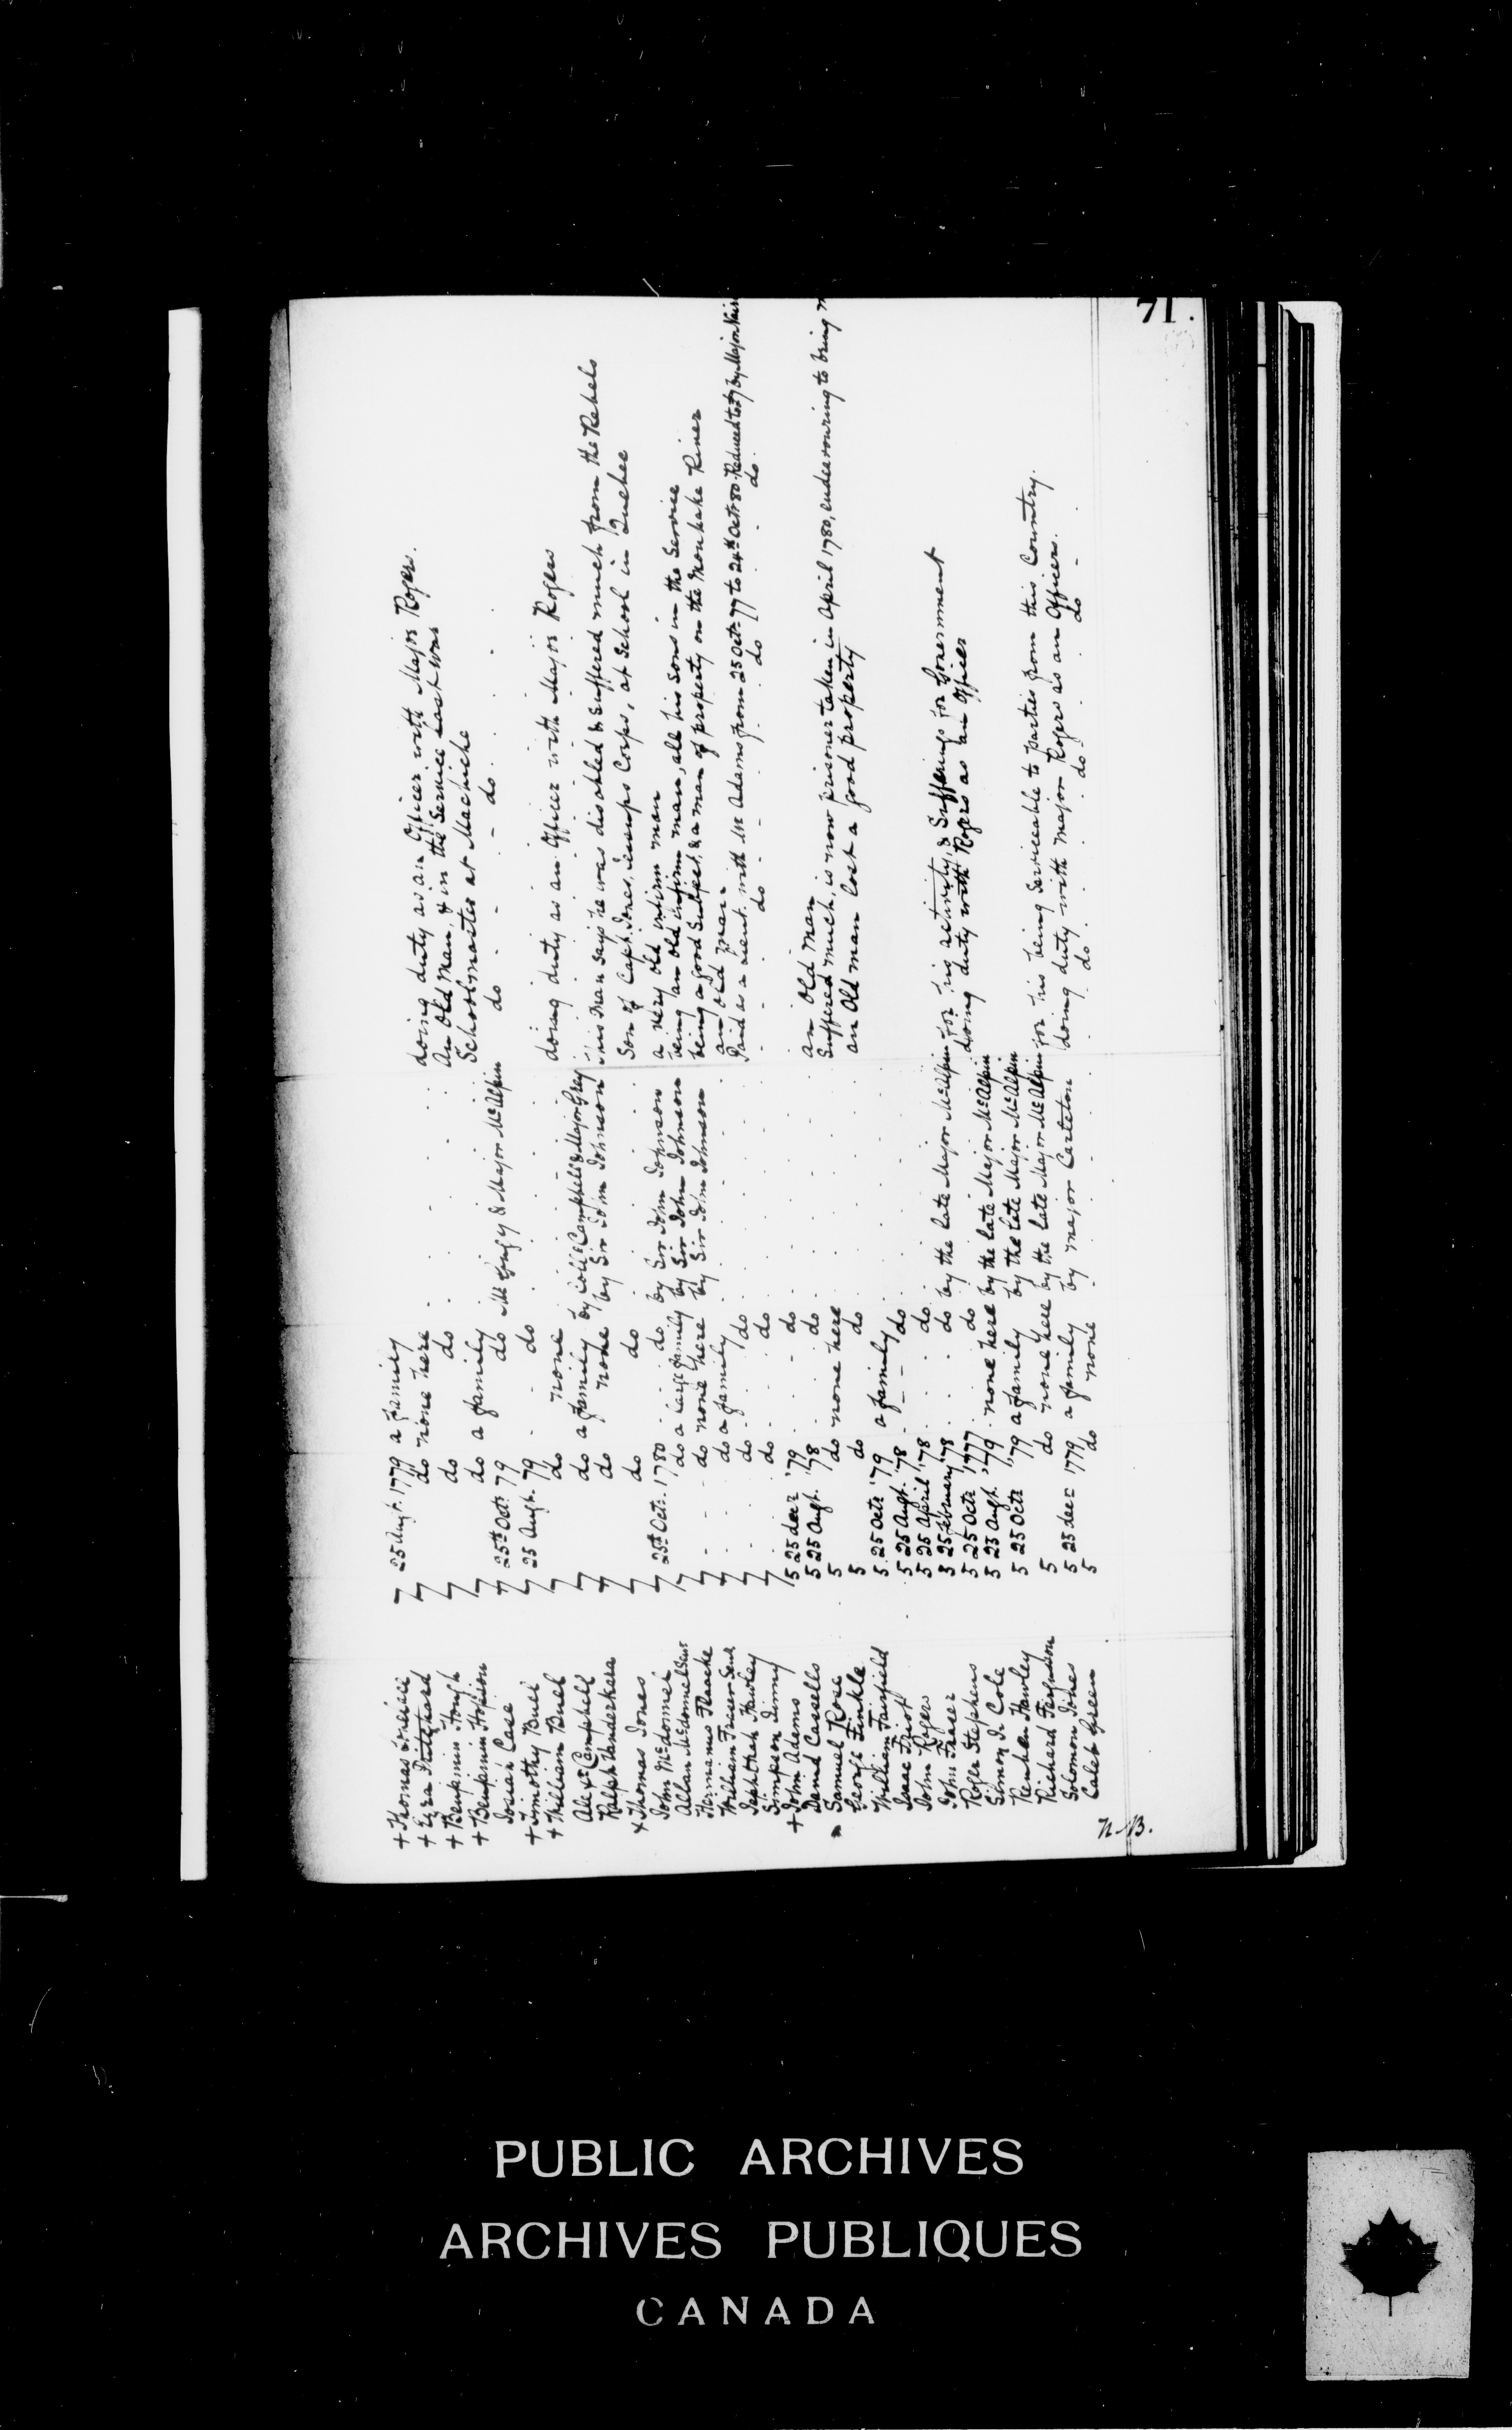 71.
+ Thomas 7 25 Augt. 1779 a family
+ Ezra Pritchard 7 do none here . . . . doing duty as an Officer with Major Rogers.
+ Benjamin Hough 7 do do . . . . An Old Man, & in the Service Last War
+ Benjamin Hopson 7 do a family Schoolmaster at Machiche
Josiah Case 7 25th Octr. 79 do Mr & Major McAlpin do - - do - - -
+ Timothy Buel 7 25 Augt. 79 . do
+ William Buel 7 do none . . . . doing duty as an Officer with Major Rogers
Alexr. Campbell 7 do a family by Coll: Campbell & Major Gray This Man says he was disabled & suffered much from the Rebels
Ralph Vanderkara 7 do none by Sir John Johnson Son of Capt. Jones, Corps, at School in Quebec
+ Thomas Jones 7 do do
John McDonnel 7 25th Octr. 1780 . . do by Sir John Johnson a very old infirm man
Allan McDonnel Senr 7 do a large family by Sir John Johnson being an old infirm man, all his sons in the Service
Hermanus 7 - do none here by Sir John Johnson being a good Subject, & a man of property on the Mouhake River
William Fraser Senr 7 - do a family an old man
Jephthah Hawley 7 do . do Paid as a Lieut. with Mr Adams from 25 Octr. 77 to 24th Octr 80. Reduced to by Major
Simpson Jinny 7 do . do - do - do - do
+ John Adams 5 25 decr '79 . . do
David Cassells 5 25 Augt. '78 . do an Old Man
Samuel Rose 5 do none here Suffered much, is now prisoner taken in April 1780, endeavouring to bring
George Finkle 5 do do an Old man Lost a good property
William Fairfield 5 25 Octr '79 a family
Isaac 5 25 Augt. '78 . - - do
John Rogers 5 25 April '78 . . do
John Fraser 5 25 February '78 . . do by the late Major McAlpin for his activity, & Sufferings for Government
Roger Stephens 5 25 Octr 1777 do doing duty with Rogers as an Officer
Simon Dr Cole 5 25 Augt. '79 . none here by the late Major McAlpin
Reuben Hawley 5 25 Octr '79 a family by the late Major McAlpin
Richard Ferguson 5 do none here by the late Major McAlpin for his being Serviceable to parties from this Country.
Solomon Johes 5 25 decr 1779 a family by Major Carleton doing duty with Major Rogers as an Officers.
Caleb Green 5 do none . . . do . . . do . . . do -
N.B.
PUBLIC ARCHIVES
ARCHIVES PUBLIQUES
CANADA